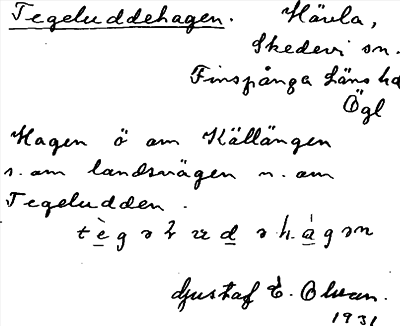 Tegeluddehagen. Hävla,
Skedevi sn.
Finspånga läns hd
Ögl
Hagen ö om Källängen
s. om landsvägen n. om
Tegeludden.
Gustaf E. Olsson.
1931